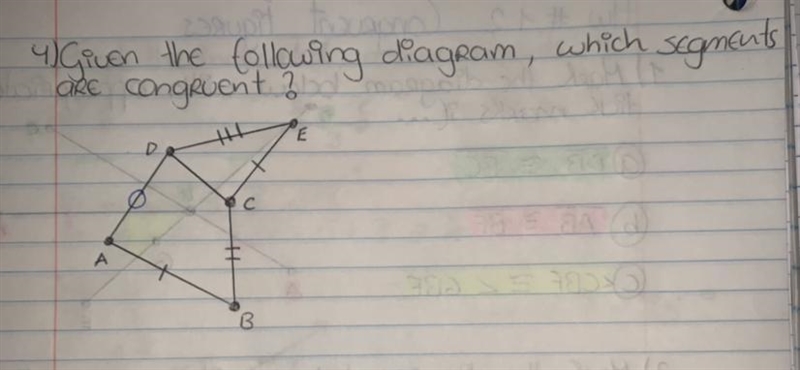 4) Given the following diagram, which segments
are congruent?
D
E
C
A
B